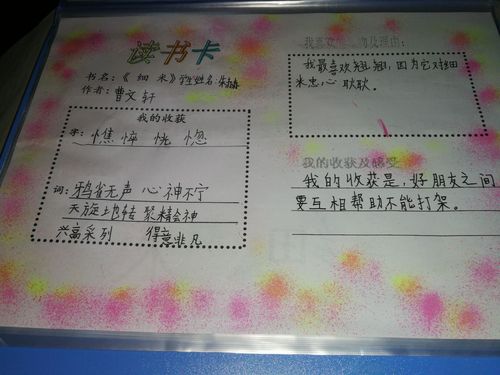 读书卡
书名：《细米》学生姓名：
作者：曹文轩
我的收获
字：憔悴恍惚
词：鸦雀无声 心神不宁
天旋地转 聚精会神
兴高采列 得意非凡
我喜欢 及理由：
我最喜欢翘翘，因为它对细
米忠心耿耿。
我的收获及感受
我的收获是，好朋友之间
要互相帮助不能打架。